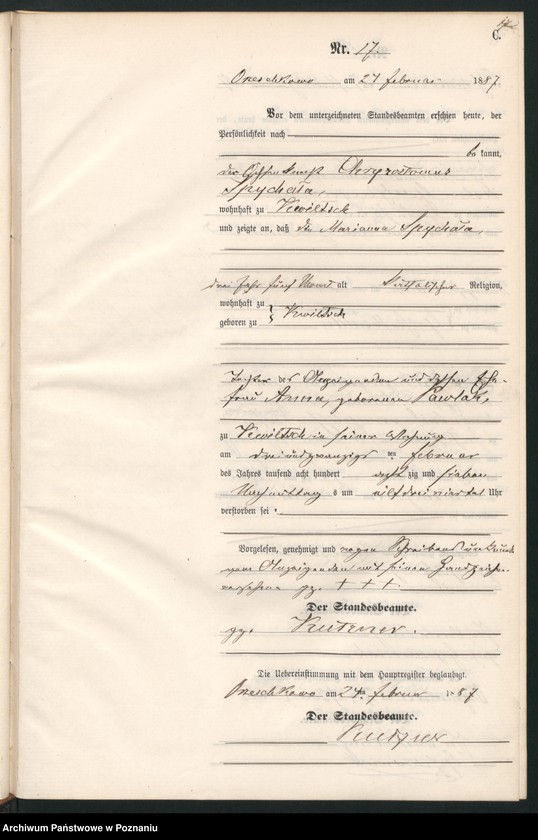 C.
Nr. 17.
Orzeschkowo am 24 Februar 1887
Vor dem unterzeichneten Standesbeamten erschien heute, der
Persönlichkeit nach
be kannt,
der Chrysostomus
Spychała,
wohnhaft zu Kwiltsch
und zeigte an, daß die Marianna Spychała,
drei Jahr fünf Monat alt katholischer Religion,
wohnhaft zu
geboren zu Kwiltsch
Tochter des Anzeigenden und dessen Ehe-
frau Anna, geborenen Pawlak,
zu Kwiltsch in seiner Wohnung
am dreiundzwanzigsten Februar
des Jahres tausend acht hundert acht zig und sieben
Nachmittags um elf dreiviertel Uhr
verstorben sei.
Vorgelesen, genehmigt und wegen Schreibensunkunde
vom Anzeigenden mit seinen Handzeichen
versehen + + +
Der Standesbeamte.
gez.
Die Uebereinstimmung mit dem Hauptregister beglaubigt.
Orzeschkowo am 24 Februar 1887
Der Standesbeamte.
Archiwum Państwowe w Poznaniu